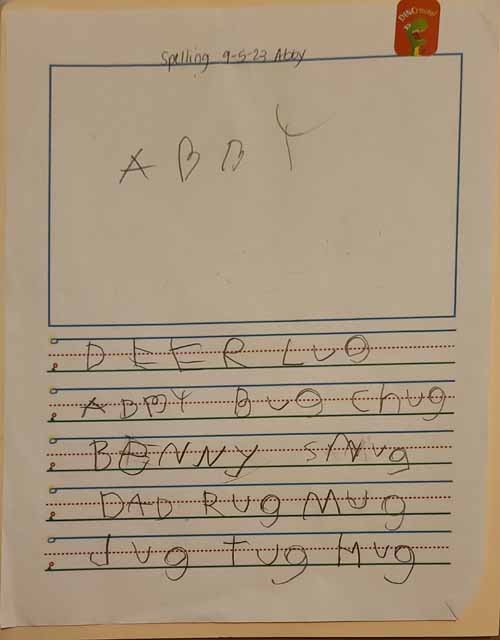 DINOmite!
Spelling 9-5-23 Abby
ABBY
DEER Lug
ABBY Bug Chug
BENNY SNug
DAD Rug Mug
Jug Tug Hug